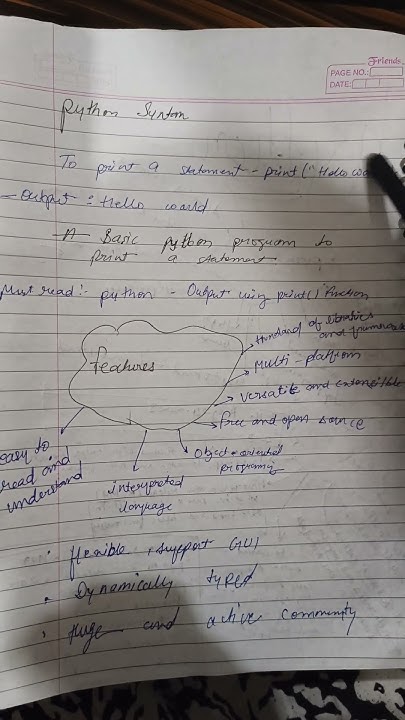 Friends
PAGE NO.:
DATE:
Python Syntax
To print a statement - print ("Hello
- Output : Hello world
- A Basic python program to
print a statement
Must read :- python - Output using print() function
features
Hundred of libraries
and frameworks
Multi-platform
Versatile and extensible
Free and open source
Object-oriented
programing
interpreted
language
easy to
read and
understand
• flexible, support GUI
• Dynamically typed
• Huge and active community